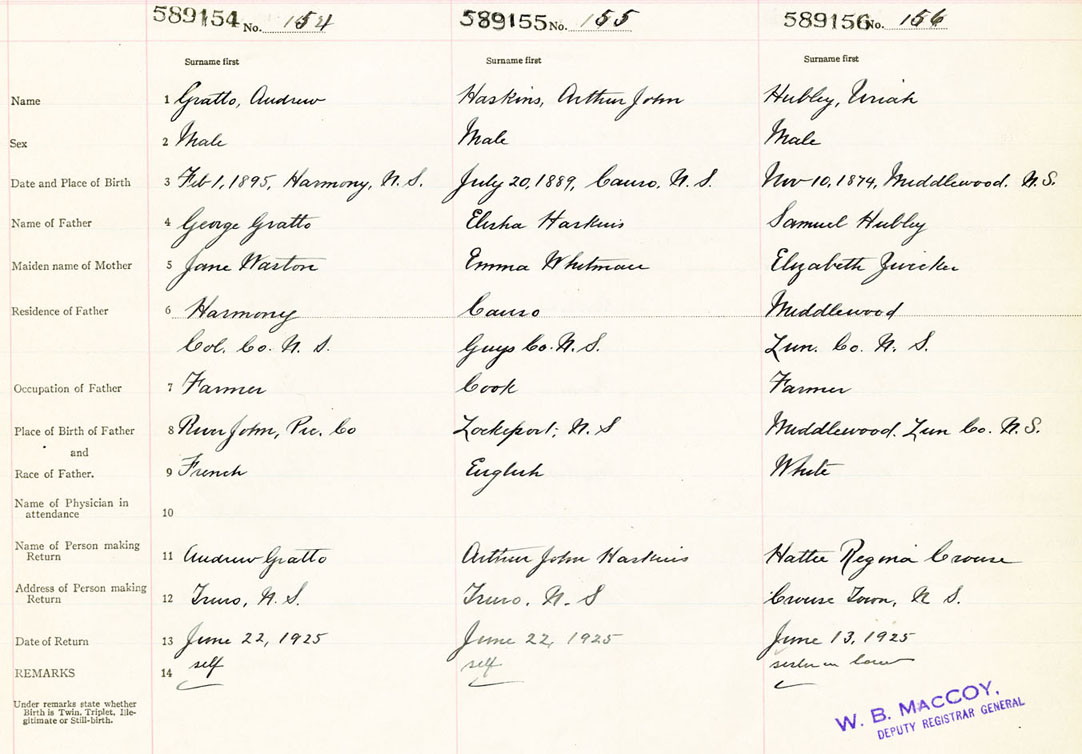 589154 No. 154 589155 No. 155 589156 No. 156
Surname first Surname first Surname first
Name 1 Gratto, Andrew Haskins, Arthur John Hubley, Uriah
Sex 2 Male Male Male
Date and Place of Birth 3 Feb 1, 1895, Harmony, N.S. July 20, 1889, Canso, N.S. Nov 10, 1874, Middlewood. N.S.
Name of Father 4 George Gratto Elisha Haskins Samuel Hubley
Maiden name of Mother 5 Jane Waston Emma Whitman Elizabeth Zwicker
Residence of Father 6 Harmony Canso Middlewood
Col. Co. N.S. Guys Co. N.S. Lun. Co. N.S.
Occupation of Father 7 Farmer Cook Farmer
Place of Birth of Father 8 River John, Pic. Co Lockeport, N.S Middlewood. Lun Co. N.S.
and
Race of Father. 9 French English White
Name of Physician in
attendance 10
Name of Person making
Return 11 Andrew Gratto Arthur John Haskins Hattie Regina Crouse
Address of Person making
Return 12 Truro, N.S. Truro, N.S Crouse Town, N S.
Date of Return 13 June 22, 1925 June 22, 1925 June 13, 1925
REMARKS 14 self self sister in law
Under remarks state whether
Birth is Twin, Triplet, Ille-
gitimate or Still-birth.
W. B. MACCOY,
DEPUTY REGISTRAR GENERAL